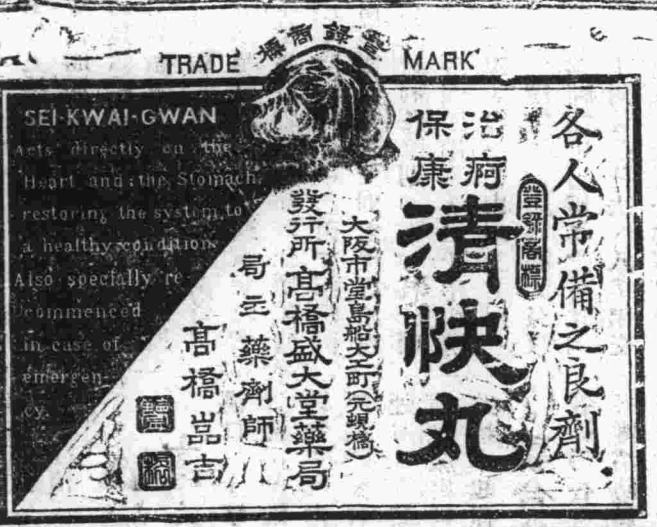 TRADE MARK
登録商標
SEI·KWAI·GWAN
Acts directly on the
Heart and the Stomach
restoring the system to
a healthy condition
Also specially re
commenced
in case of
emergen-
cy.
各人常備之良劑
登録商標
治痾
保康
清快丸
大阪市堂島船大工町(元頭橋)
發行所高橋盛大堂藥局
局主藥劑師
高橋嵓吉